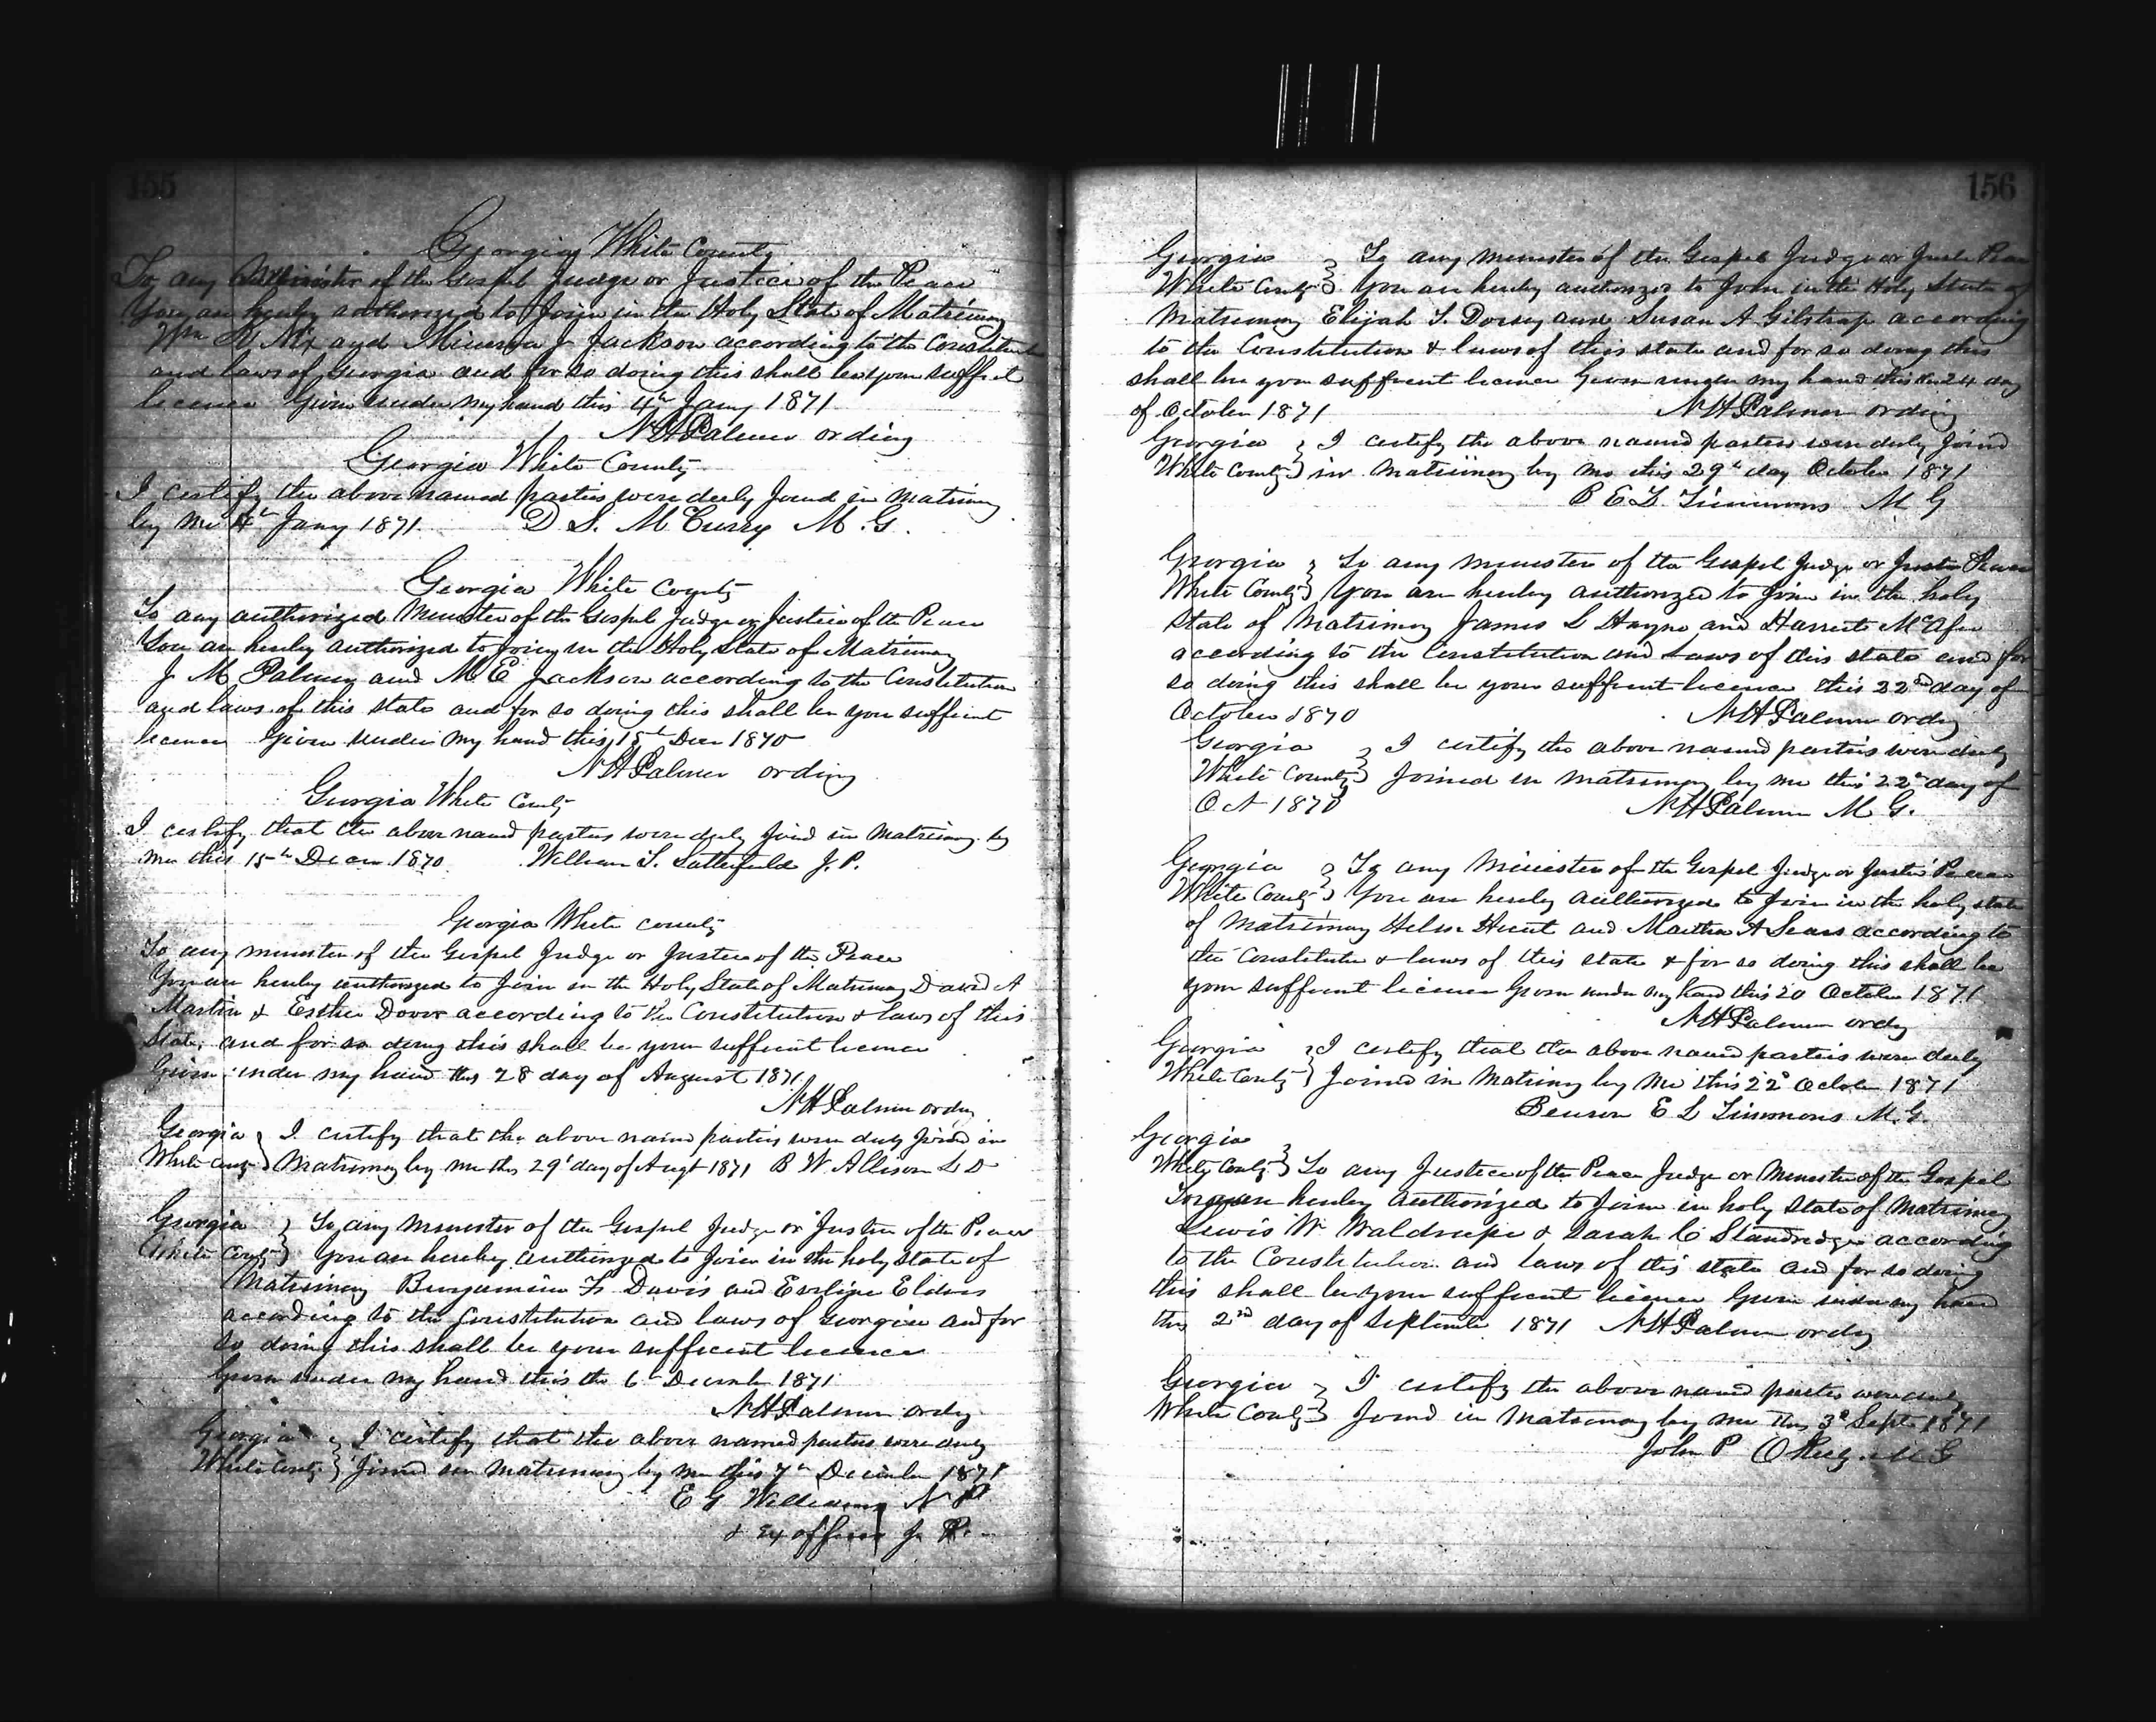 155
Georgia White County
To any Minister of the Gospel Judge or Justice of the Peace
You are hereby authorized to Join in the Holy State of Matrimony
Wm R Nix and Minerva J Jackson according to the Constitution
and laws of Georgia and for so doing this shall be your suffict
licence Given under my hand this 4th Jany 1871
N H Palmer ordiny
Georgia White County
I certify the above named parties were duly Joind in Matrimy
by me 4th Jany 1871. D S. McCurry M. G.
Georgia White County
To any authorized Minister of the Gospel Judge or Justice of the Peace
You are hereby authorized to Join in the Holy State of Matrimony
J M Palmer and M E Jackson according to the Constitution
and laws of this state and for so doing this shall be your sufficient
licence Given under my hand this 15th Decr 1870
N H Palmer ordiny
Georgia White County
I certify that the above named parties were duly Joind in Matrimony by
me this 15th Decem 1870 William S. Satterfield J. P.
Georgia White county
To any minister of the Gospel Judge or Justice of the Peace
You are hereby authorized to Join in the Holy State of Matrimony David A
Martin & Esther Dover according to the Constitution & laws of this
State, and for so doing this shall be your sufficent licence
Given under my hand this 28 day of August 1871
N H Palmer ordny
Georgia } I certify that the above named parties were duly Joined in
White County } Matrimony by me this 29th day of Augt 1871 B W Allison L D
Georgia } To any Minister of the Gospel Judge or Justice of the Peace
White County } You are hereby authorized to Join in the holy State of
Matrimony Benjamin F Davis and Eveline Elders
according to the Constitution and laws of Georgia and for
so doing this shall be your sufficient licence
Given under my hand this the 6th Decembr 1871
N H Palmer ordy
Georgia } I certify that the above named parties were duly
White County } Joined in matrimony by me this 7th December 1871
E G Williams N P
& Ex officio J. P.
156
Georgia } To any minister of the Gospel Judge or Juste Peace
White County } You are hereby authorized to Join in the Holy State of
Matrimony Elijah S. Dorsey and Susan A Gilstrap according
to the Constitution & laws of this state and for so doing this
shall be your sufficent licence Given under my hand this the 24 day
of October 1871 N H Palmer ordiny
Georgia } I certify the above named parties were duly Joind
White County } in Matrimony by me this 29th day October 1871
B E L Timmons M G
Georgia } To any minister of the Gospel Judge or Justice Peace
White County } You are hereby authorized to Join in the holy
State of Matrimony James L Hayne and Harriet McAfee
according to the Constitution and Laws of this state and for
so doing this shall be your sufficent licence this 22nd day of
October 1870 N H Palmer ordny
Georgia } I certify the above named parties were duly
White County } Joined in matrimony by me this 22nd day of
Oct 1870 N H Palmer M G.
Georgia } To any Minister of the Gospel Judge or Justice Peace
White County } You are hereby authorized to Join in the holy state
of Matrimony Hunt and Martha A Sears according to
the Constitution & laws of this state & for so doing this shall be
your sufficent licence Given under my hand this 20 October 1871
N H Palmer ordy
Georgia } I certify that the above named parties were duly
White County } Joined in Matrimony by me this 22d October 1871
Benson E L Timmons M. G.
Georgia
White County } To any Justice of the Peace Judge or Minister of the Gospel
You are hereby authorized to Join in holy State of Matrimony
Lewis W Waldrupe & Sarah C Standredge according
to the Constitution and laws of this state and for so doing
this shall be your sufficent licence Given under my hand
this 2nd day of September 1871 N H Palmer ordny
Georgia } I certify the above named parties were duly
White County } Joind in Matrimony by me this 3d Sept 1871
John P M G